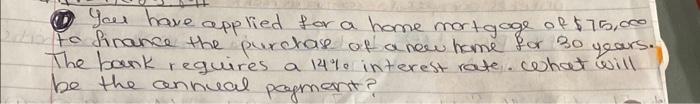 ① You have applied for a home mortgage of $75,000
to finance the purchase of a new home for 30 years.
The bank requires a 14% interest rate. What will
be the annual payment?